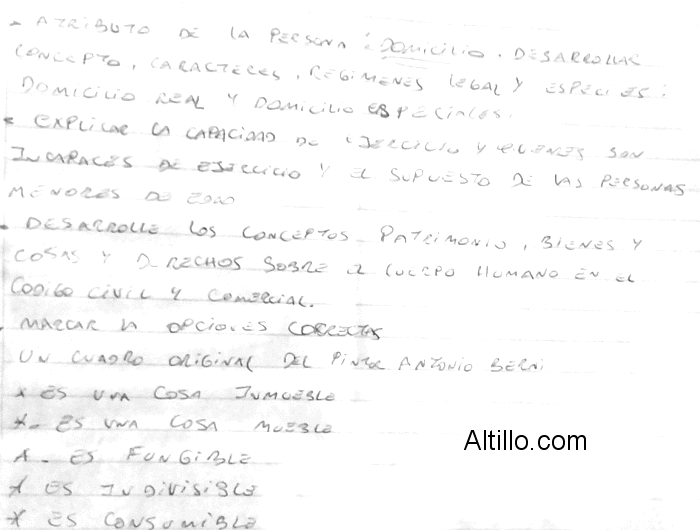 - ATRIBUTO DE LA PERSONA: DOMICILIO. DESARROLLAR
CONCEPTO, CARACTERES, REGIMENES LEGAL Y ESPECIES:
DOMICILIO REAL Y DOMICILIO ESPECIALES.
• EXPLICAR LA CAPACIDAD DE EJERCICIO Y QUIENES SON
INCAPACES DE EJERCICIO Y EL SUPUESTO DE LAS PERSONAS
MENORES DE EDAD
• DESARROLLE LOS CONCEPTOS PATRIMONIO, BIENES Y
COSAS Y DERECHOS SOBRE EL CUERPO HUMANO EN EL
CODIGO CIVIL Y COMERCIAL.
. MARCAR LA OPCIONES CORRECTAS
UN CUADRO ORIGINAL DEL PINTOR ANTONIO BERNI
X ES UNA COSA INMUEBLE
X - ES UNA COSA MUEBLE
X - ES FUNGIBLE
X ES INDIVISIBLE
X ES CONSUMIBLE
Altillo.com